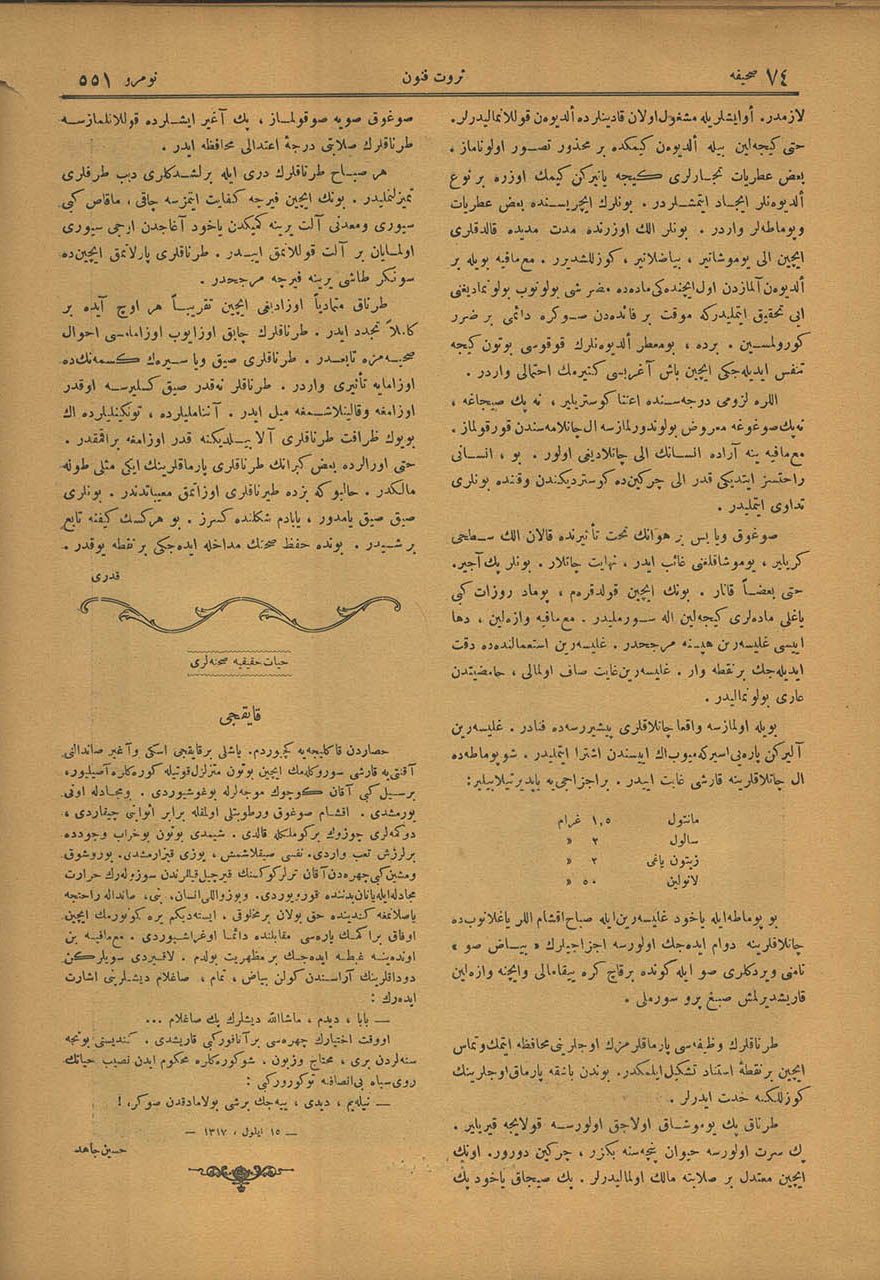 صحیفه ٧٤
ثروت فنون
نومرو ٥٥١
لازمدر. أوایشلریله مشغول اولان قادینلرده ألدیوەن قوللانمالیدرلر.
حتی کیجه‌لین بیله ألدیوەن کیمکده بر محذور تصور اولوناماز.
بعض عطریات تجارلری کیجه یاتیرکن کیمك اوزره بر نوع
ألدیوەنلر ایجاد ایتمشلردر. بونلرك ایچریسنده بعض عطریات
ویوماطه‌لر واردر. بونلر الك اوزرنده مدت مدیده قالدقلری
ایچین الی یوموشاتیر، بیاضلاتیر، کوزللشدیرر. مع‌مافیه بویله بر
ألدیوەن آلمازدن اول ایچنده‌کی ماده‌ده مضر شی بولونوب بولونمادیغنی
ایی تحقیق ایتملیدرکه موقت بر فائده‌دن صوکره دائمی بر ضرر
کورولمسین. برده، بومعطر ألدیوەنلرك قوقوسی بوتون کیجه
تنفس ایدیله‌جکی ایچین باش آغریسی کتیرمك احتمالی واردر.
اللره لزومی درجه‌سنده اعتنا کوستریلیر، نه پك صیجاغه،
نه‌پك صوغوغه معروض بولوندورلمازسه ال چاتلامه‌سندن قورقولماز.
مع‌مافیه ینه آراده انسانك الی چاتلادیغی اولور. بو، انسانی
راحتسز ایتدیکی قدر الی چرکین‌ده کوستردیکندن وقتنده بونلری
تداوی ایتملیدر.
صوغوق ویا یبس بر هوانك تحت تأثیرنده قالان الك سطحی
کریلیر، یوموشاقلغنی غائب ایدر، نهایت چاتلار. بونلر پك آجیر.
حتی بعضاً قانار. بونك ایچین قولدقره‌م، یوماد روزات کبی
یاغلی ماده‌لری کیجه‌لین اله سورملیدر. مع‌مافیه وازه‌لین، دها
اییسی غلیسه‌رین هپسنه مرجحدر. غلیسه‌رین استعمالنده‌ده دقت
ایدیله‌جك بر نقطه وار. غلیسه‌رین غایت صاف اولمالی، حامضیتدن
عاری بولونمالیدر.
بویله اولمازسه واقعا چاتلاقلری پیشیررسه‌ده فنادر. غلیسه‌رین
آلیرکن پاره‌یی اسیرکه‌میوب‌اك اییسندن اشترا ایتملیدر. شو پوماطه‌ده
ال چاتلاقلرینه قارشی غایت اییدر. بر اجزاجی‌یه یاپدیرتیلابیلیر:
مانتول ١,٥ غرام
سالول ٢ «
زیتون یاغی ٢ «
لانولین ٥٠ «
بو پوماطه‌ایله یاخود غلیسه‌رین‌ایله صباح اقشام اللر یاغلانوب‌ده
چاتلاقلرینه دوام ایده‌جك اولورسه اجزاجیلرك « بیاض صو »
نامنی ویردکلری صو ایله کونده برقاچ کره ییقامالی وایچنه وازه‌لین
قاریشدیرلمش صبغ پرو سورملی.
طرناقلرك وظیفه‌سی پارماقلرمزك اوجلرینی محافظه ایتمك وتماس
ایچین بر نقطۀ استناد تشکیل ایلمکدر. بوندن باشقه پارماق اوجلرینك
کوزللکنه خدمت ایدرلر.
طرناق پك یوموشاق اولاجق اولورسه قولایجه قیریلیر.
پك سرت اولورسه حیوان پنچه‌سنه بکزر، چرکین دورور. اونك
ایچین معتدل بر صلابته مالك اولمالیدرلر. پك صیجاق یاخود پك
صوغوق صویه صوقولماز، پك آغیر ایشلرده قوللانلمازسه
طرناقلرك صلابتی درجۀ اعتدالی محافظه ایدر.
هر صباح طرناقلرك دری ایله برلشدکلری دیب طرفلری
تمیزلنملیدر. بونك ایچین فیرچه کفایت ایتمزسه چاقی، ماقاص کبی
سیوری ومعدنی آلت یرینه کمیکدن یاخود آغاجدن اوجی سیوری
اولمایان بر آلت قوللانمق اییدر. طرناقلری پارلاتمق ایچین‌ده
سونکر طاشی یرینه فیرچه مرجحدر.
طرناق متمادیاً اوزادیغی ایچین تقریباً هر اوچ آیده بر
کاملاً تجدد ایدر. طرناقلرك چابق اوزایوب اوزامامسی احوال
صحیه‌مزه تابعدر. طرناقلری صیق ویا سیرەك کسمه‌نك‌ده
اوزامایه تأثیری واردر. طرناقلر نه‌قدر صیق کسلیرسه اوقدر
اوزامغه وقالینلاشمغه میل ایدر. آننامیلرده، تونکینلیلرده اك
بویوك ظرافت طرناقلری آلابیلدیکنه قدر اوزامغه براقمقدر.
حتی اورالرده بعض کبرانك طرناقلری پارماقلرینك ایکی مثلی طوله
مالکدر. حالبوکه بزده طیرناقلری اوزاتمق معیباتدندر. بونلری
صیق صیق یامدور، یابادم شکلنده کسرز. بو هرکسك کیفنه تابع
بر شیدر. بونده حفظ صحتك مداخله ایده‌جکی بر نقطه یوقدر.
قدری
حیات حقیقیه صحنه‌لری
قایقجی
حصاردن قاکلیجه‌یه کچیوردم. یاشلی بر قایقجی اسکی وآغیر صاندالنی
آقنتی‌یه قارشی سوروکله‌مك ایچین بوتون متزلزل قوتیله کوره‌کلره آصیلیور،
بر سیل کبی آقان کوچوك موجه‌لرله بوغوشیوردی. ومجادله اونی
یورمشدی. اقشام صوغوق ورطوبتلی اولمغله برابر اثوابنی چیقاردی،
دوکمه‌لری چوزوك بر کوملکله قالدی. شیمدی بوتون بوخراب وجودده
بر لرزش تعب واردی. نفسی صیقلاشمش، یوزی قیزارمشدی. بوروشوق
ومشین کبی چهره‌دن آقان ترلر کوکسنك قیرچیل قیللرندن سوزوله‌رك حرارت
مجادله ایله یانان بدننده قورویوردی. وبو زواللی انسان، بنی، صانداله راحتجه
یاصلانمغه کندینده حق بولان بر مخلوقی، ایسته‌دیکم یره کوتورمك ایچین
اوفاق بر اکمك پاره‌سی مقابلنده دائما اوغراشیوردی. مع‌مافیه بن
اونده‌ینه غبطه ایده‌جك بر مظهریت بولدم. لاقیردی سویلرکن
دوداقلرینك آراسندن کولن بیاض، تمام، صاغلام دیشلرینی اشارت
ایده‌رك:
— بابا، دیدم، ماشاالله دیشلرك پك صاغلام ...
اووقت اختیارك چهره‌سی بر آنافورکبی قاریشدی. کندیسنی بونجه
سنه‌لردن بری، محتاج وزبون، شوکوره‌کلره محکوم ایدن نصیب حیاتك
روی سیاه بی‌انصافنه توکورورکبی:
— نیله‌یم، دیدی، ییه‌جك بر شی بولامادقدن صوکره!
— ١٥ ایلول، ١٣١٧ —
حسین جاهد